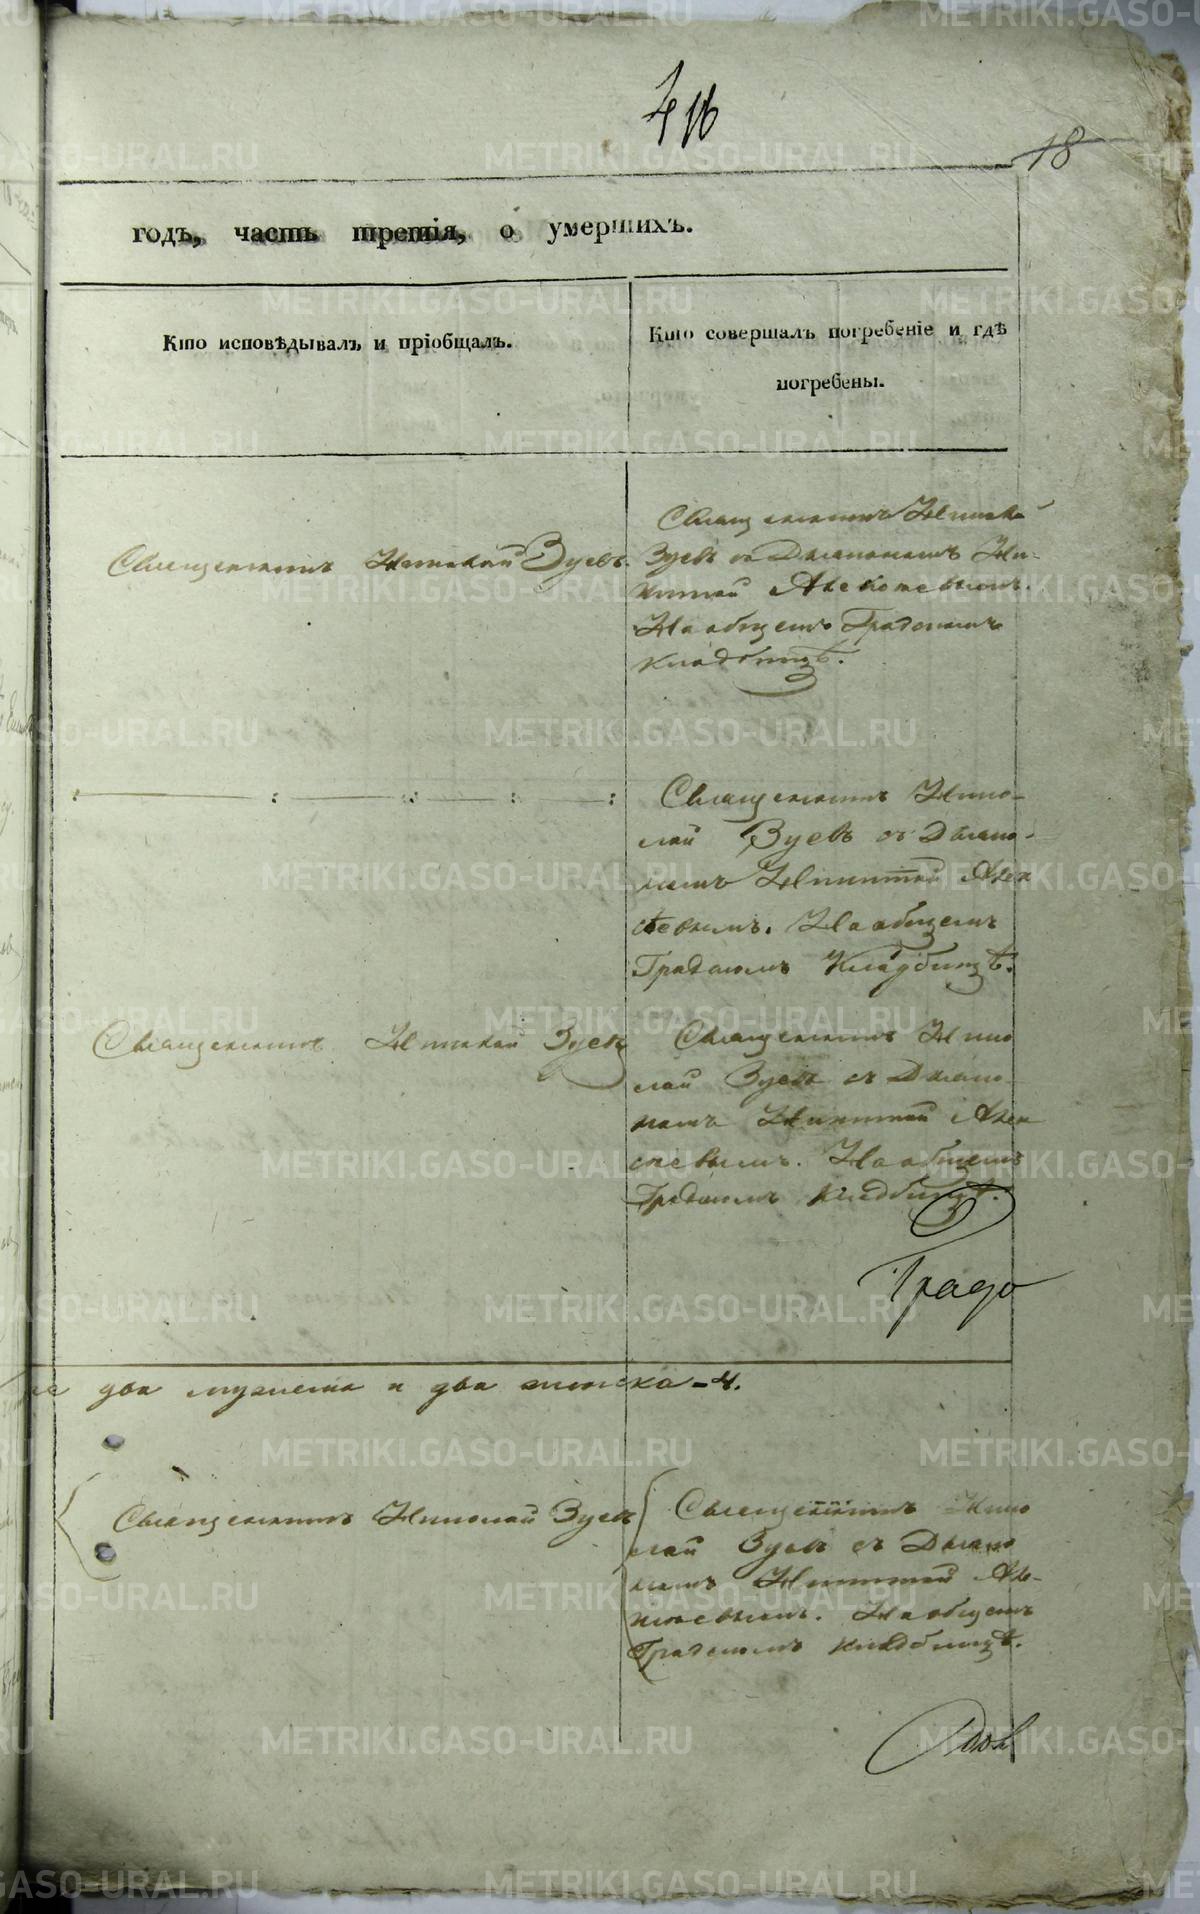 416
18
годъ, часть третія, о умершихъ.
Кто исповѣдывалъ и пріобщалъ.
Кто совершалъ погребеніе и гдѣ
погребены.
Священникъ Николай Зуевъ.
Священникъ Никола
Зуевъ съ Діакономъ Ни-
китой Алексеевымъ.
На общемъ Градскомъ
кладбищѣ.
Священникъ Нико-
лай Зуевъ съ Діако-
номъ Никитой Алек
сѣевымъ. На общемъ
Градскомъ Кладбищѣ.
Священникъ Николай Зуевъ
Священникъ Нико
лай Зуевъ съ Діако-
номъ Никитой Алек
сеевымъ. На общемъ
Градскомъ кладбищѣ.
Градо
два мужеска и два женска - 4.
Священникъ Николай Зуевъ
Священникъ Нико
лай Зуевъ съ Діако
номъ Никитой Але-
ксеевымъ. На общемъ
Градскомъ кладбищѣ.
METRIKI.GASO-URAL.RU